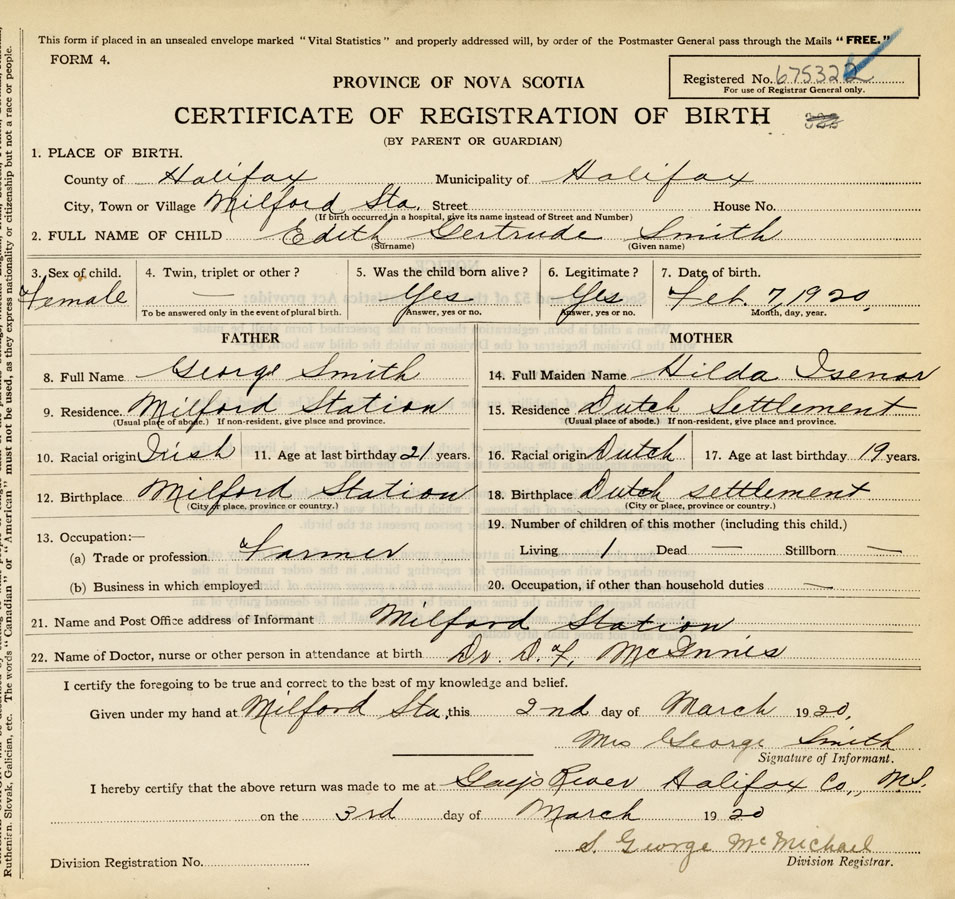 This form if placed in an unsealed envelope marked "Vital Statistics" and properly addressed will, by order of the Postmaster General pass through the Mails "FREE."
FORM 4.
Registered No. 675322
For use of Registrar General only.
PROVINCE OF NOVA SCOTIA
CERTIFICATE OF REGISTRATION OF BIRTH
(BY PARENT OR GUARDIAN)
1. PLACE OF BIRTH.
County of Halifax Municipality of Halifax
City, Town or Village Milford Sta. Street House No.
(If birth occurred in a hospital, give its name instead of Street and Number)
2. FULL NAME OF CHILD Edith Gertrude Smith
(Surname) (Given name)
3. Sex of child. 4. Twin, triplet or other? 5. Was the child born alive? 6. Legitimate? 7. Date of birth.
Female — Yes Yes Feb. 7, 1920,
To be answered only in the event of plural birth. Answer, yes or no. Answer, yes or no. Month, day, year.
FATHER MOTHER
8. Full Name George Smith 14. Full Maiden Name Hilda Isenor
9. Residence. Milford Station 15. Residence Dutch Settlement
(Usual place of abode.) If non-resident, give place and province. (Usual place of abode.) If non-resident, give place and province.
10. Racial origin Irish 11. Age at last birthday 21 years. 16. Racial origin Dutch 17. Age at last birthday 19 years.
12. Birthplace Milford Station 18. Birthplace Dutch settlement
(City or place, province or country.) (City or place, province or country.)
13. Occupation:— 19. Number of children of this mother (including this child.)
(a) Trade or profession Farmer Living 1 Dead — Stillborn —
(b) Business in which employed 20. Occupation, if other than household duties —
21. Name and Post Office address of Informant Milford Station
22. Name of Doctor, nurse or other person in attendance at birth Dr. D. F. McInnis
I certify the foregoing to be true and correct to the best of my knowledge and belief.
Given under my hand at Milford Sta, this 2nd day of March 1920,
Mrs George Smith
Signature of Informant.
I hereby certify that the above return was made to me at Gays River Halifax Co., N.S.
on the 3rd day of March 1920
S. George McMichael
Division Registrar.
Division Registration No.
Ruthenian, Slovak, Galician, etc. The words "Canadian" or "American" must not be used, as they express nationality or citizenship but not a race or people.